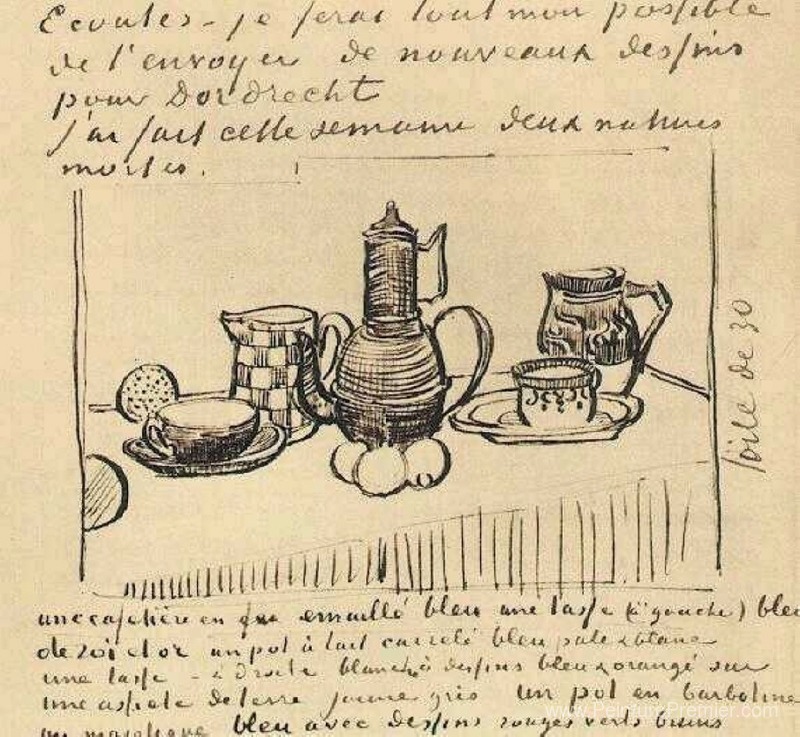 Ecoutes - je ferai tout mon possible
de t'envoyer de nouveaux dessins
pour Dordrecht
j'ai fait cette semaine deux natures
mortes.
toile de 30
une cafetière en fer emaillé bleu une tasse (à gauche) bleu
de roi et or un pot à lait carrelé bleu pale & blanc
une tasse - à droite blanche à dessins bleu & orangé sur
une assiete de terre jaune gris un pot en barbotine
ou majolique bleu avec dessins rouges verts bruns